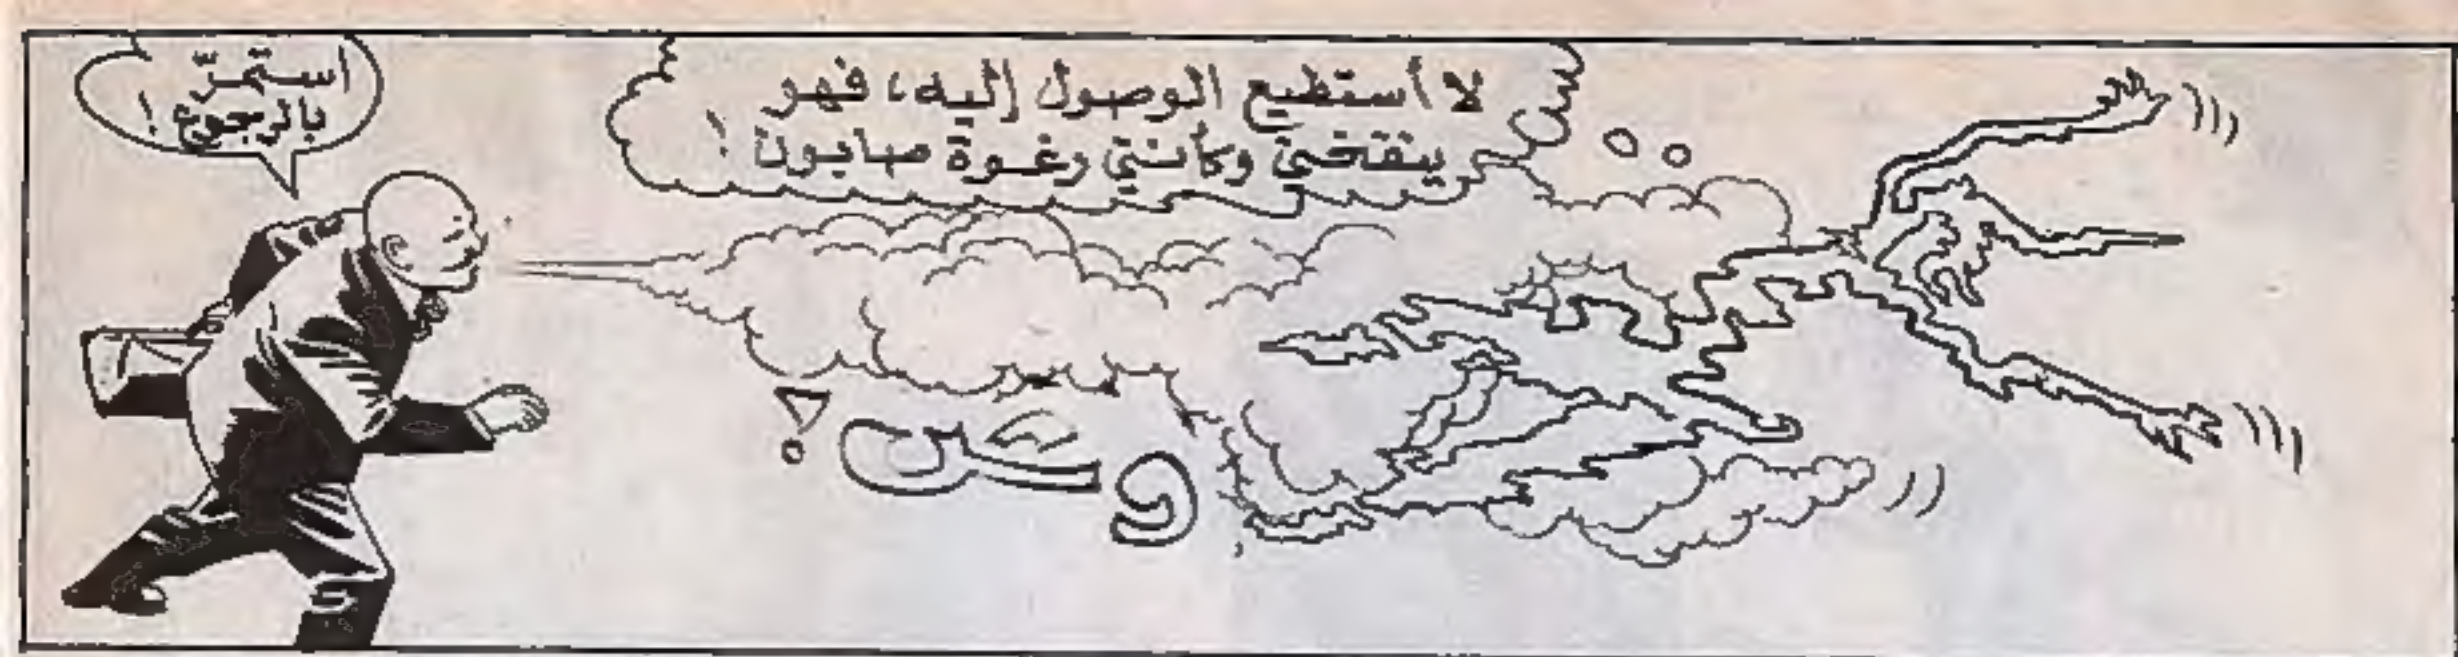 لا أستطيع الوصول إليه، فهو
ينفخني وكأنني رغوة صابون !
استمرّ
بالرجوع !